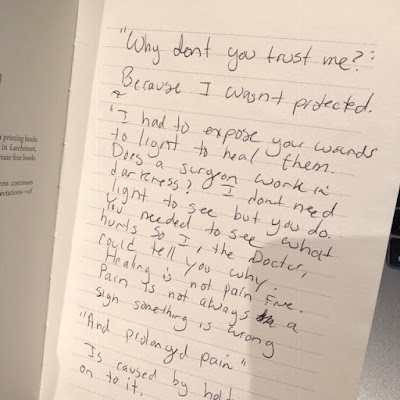 printing books
in Larchmont,
create fine books
ress continues
pectations—of
"Why dont you trust me?":
Because I wasnt protected.
"I had to expose your wounds
to light to heal them.
Does a surgeon work in
darkness? I dont need
light to see but you do.
You needed to see what
hurts so I, the Doctor,
could tell you why.
Healing is not pain free.
Pain is not always a
sign something is wrong
"And prolonged pain"
Is caused by hold
on to it.